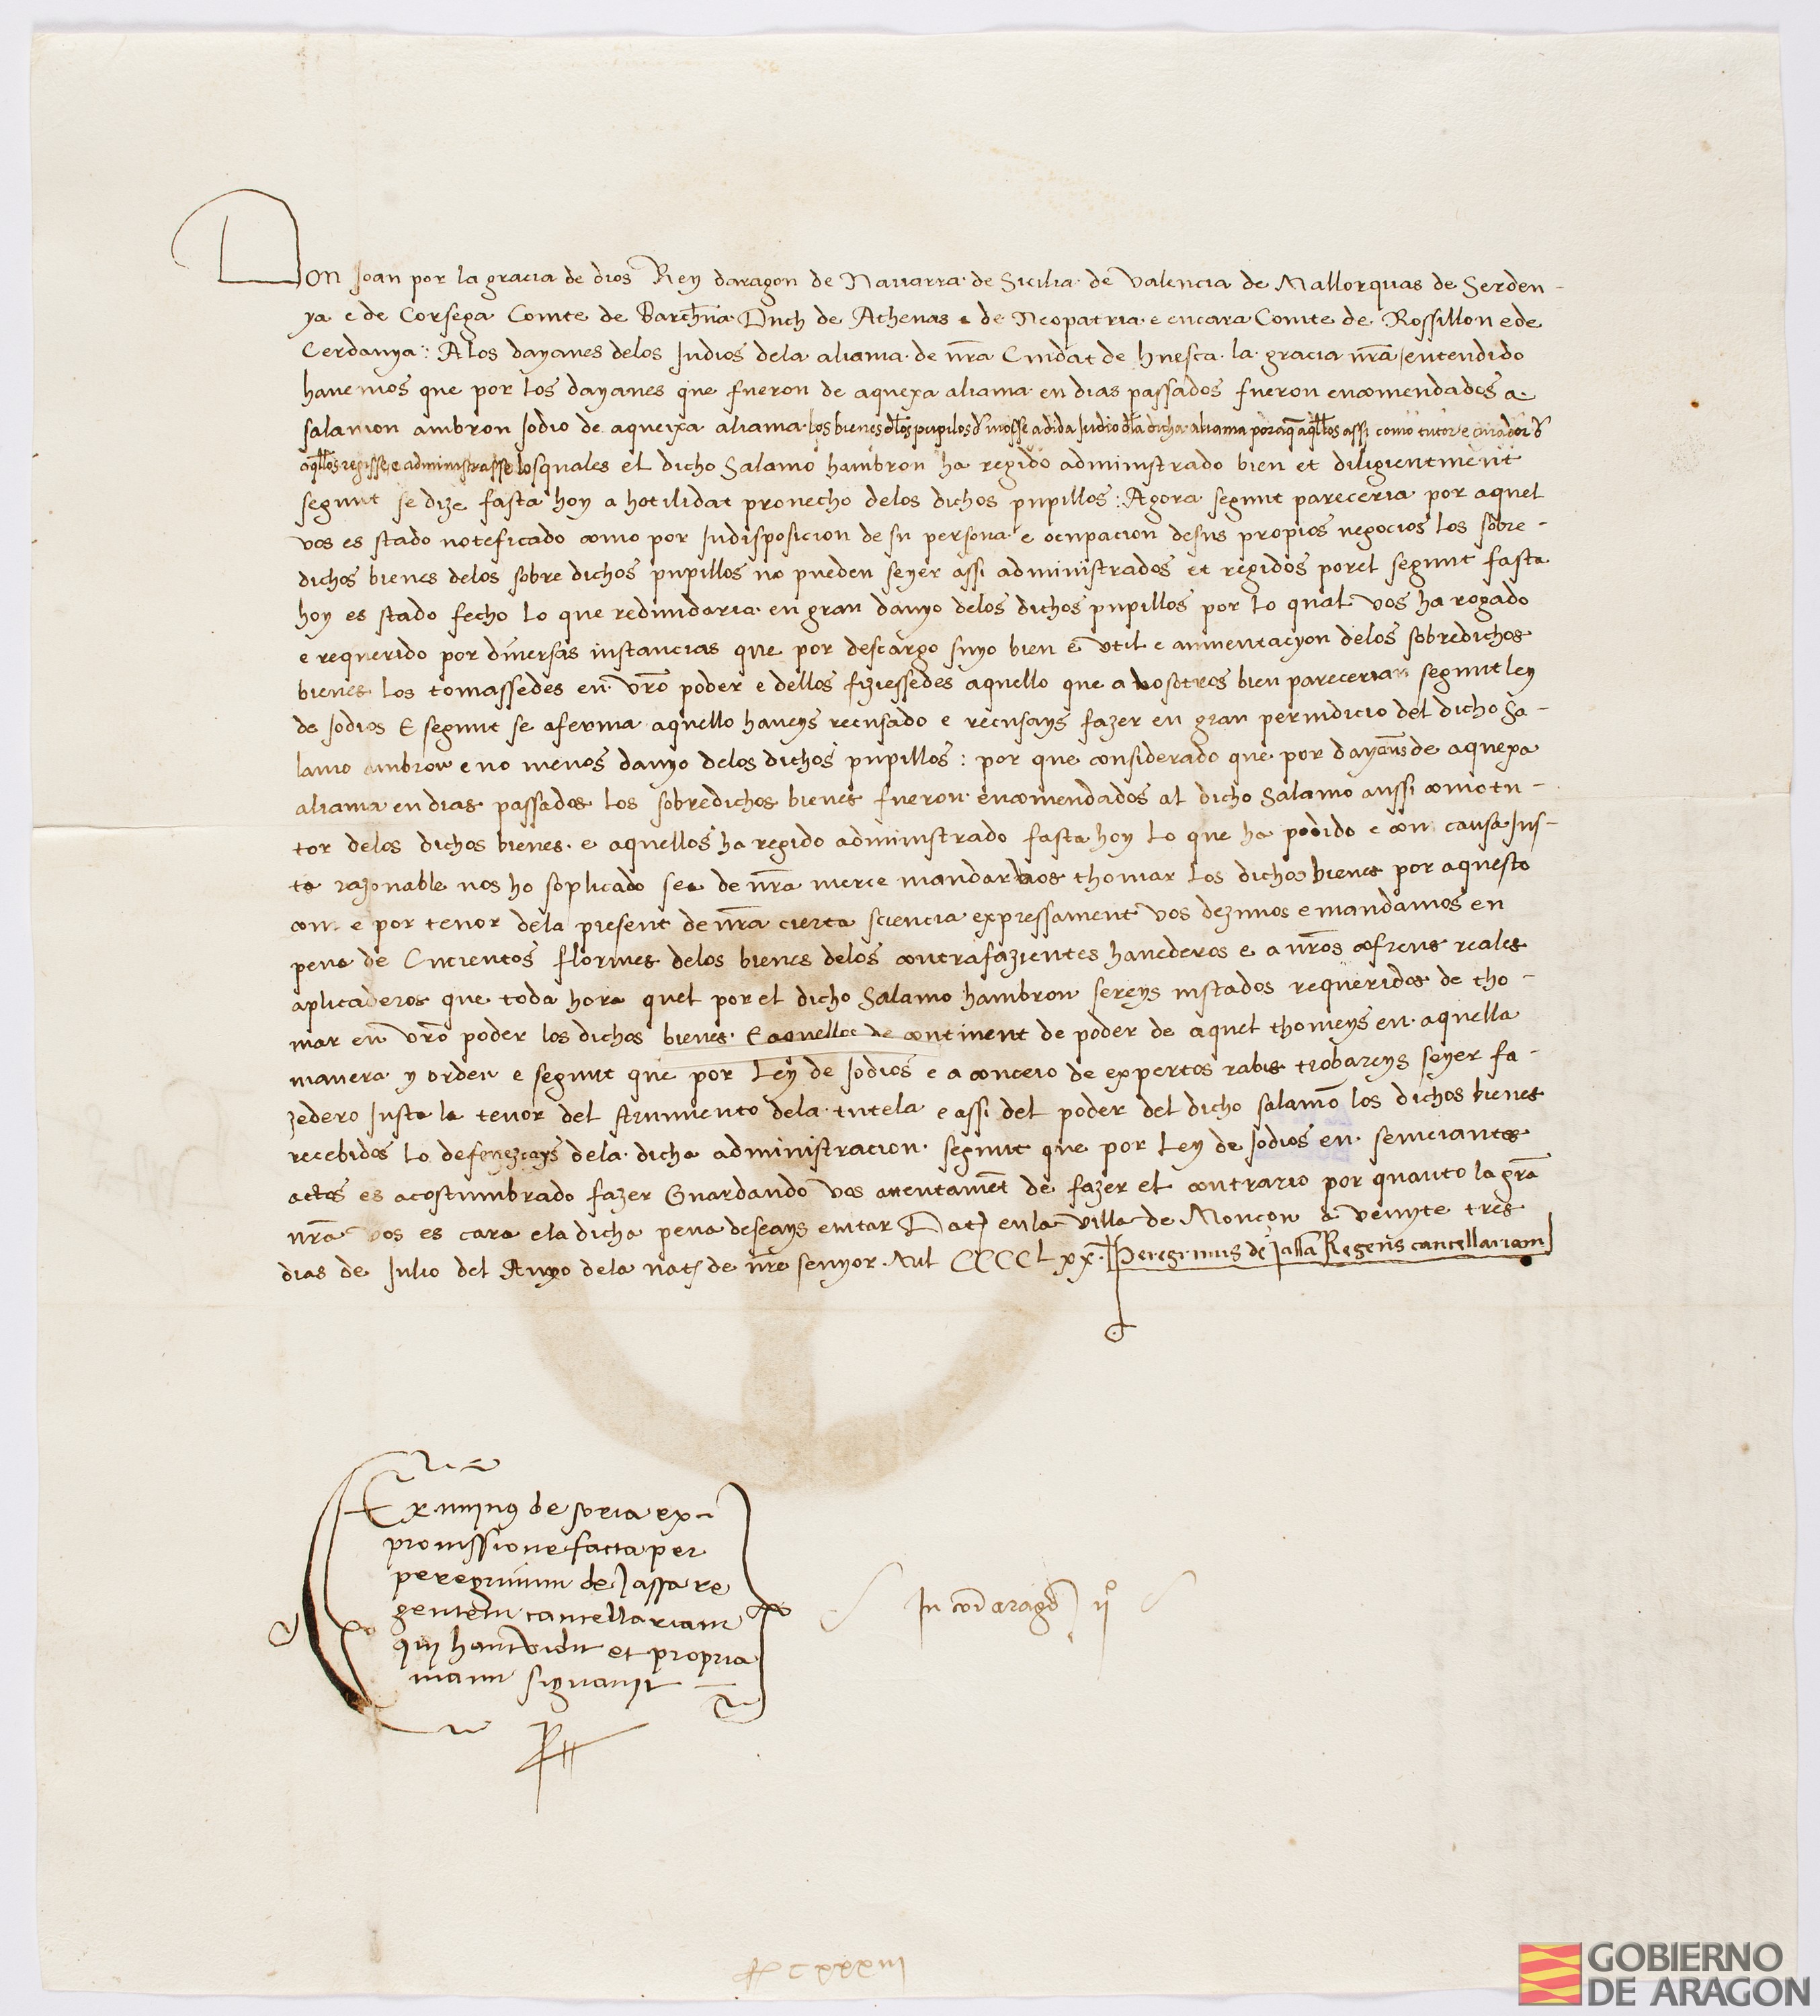 Don Joan por la gracia de dios Rey daragon de Nauarra de Sicilia de Valencia de Mallorquas de Serden-
ya e de Corsega Comte de Barchna Duch de Athenas e de Neopatria e encara Comte de Rossillon e de
Cerdanya: A los dayanes delos Judios dela aliama de nra Ciudat de Huesca la gracia nra entendido
hauemos que por los dayanes que fueron de aquexa aliama en dias passados fueron encomendados a
salamon ambron Jodio de aqueixa aliama los bienes dlos pupilos d mosse adida Judio dla dicha aliama por aq aqllos assi como tutor e curador d
aqllos regisse e administrasse los quales el dicho Salamo hambron ha regido administrado bien et diligientment
segunt se dize fasta hoy a hotilidat prouecho delos dichos pupillos: Agora segunt pareceria por aquel
vos es stado noteficado como por Jndisposicion de su persona e ocupacion de sus propios negocios los sobre-
dichos bienes delos sobre dichos pupillos no pueden seyer assi administrados et regidos por el segunt fasta
hoy es stado fecho lo que redundaria en gran danyo delos dichos pupillos por lo qual vos ha rogado
e requerido por diuersas instancias que por descargo suyo bien e vtil e aumentacyon delos sobredichos
bienes los tomassedes en vro poder e dellos fiziessedes aquello que a vosotros bien pareceria segunt ley
de Jodios E segunt se aferma aquello haueys recusado e recusays fazer en gran periudicio del dicho Sa-
lamo ambron e no menos danyo delos dichos pupillos: por que considerado que por dayans de aquexa
aliama en dias passados los sobredichos bienes fueron encomendados al dicho Salamo aussi como tu-
tor delos dichos bienes e aquellos ha regido administrado fasta hoy lo que ha podido e con causa Jus-
ta razonable nos ho soplicado sea de nra merce mandar vos thomar los dichos bienes por aquesto
con e por tenor dela present de nra cierta sciencia expressament vos dezimos e mandamos en
pena de Cincientos florines delos bienes delos contrafazientes hauederos e a nros cofrens reales
aplicaderos que toda hora quel por el dicho Salamo hambron sereys instados requeridos de tho-
mar en vro poder los dichos bienes E aquellos de continent de poder de aquel thomeys en aquella
manera y orden e segunt que por Ley de Jodios e a conceio de expertos rabis trobareys seyer fa-
zedero Justa la tenor del strumento dela tutela e assi del poder del dicho salamo los dichos bienes
recebidos lo defenezcays dela dicha administracion segunt que por Ley de Jodios en semeiantes
actos es acostumbrado fazer Guardando vos atentamet de fazer el contrario por quanto la gra
nra vos es cara e la dicha pena deseays euitar Dat en la villa de Moncon a veynte tres
dias de Julio del Anyo dela nat de nre senyor Mil CCCCLxx. Peregrinus de Jassa Regens cancellariam
Eximinus de soria ex
prouissione facta per
peregrinum de Jassa re
gentem cancellariam
qui hanc vidit et propria
manu signauit
In coi aragon ij
GOBIERNO
DE ARAGON